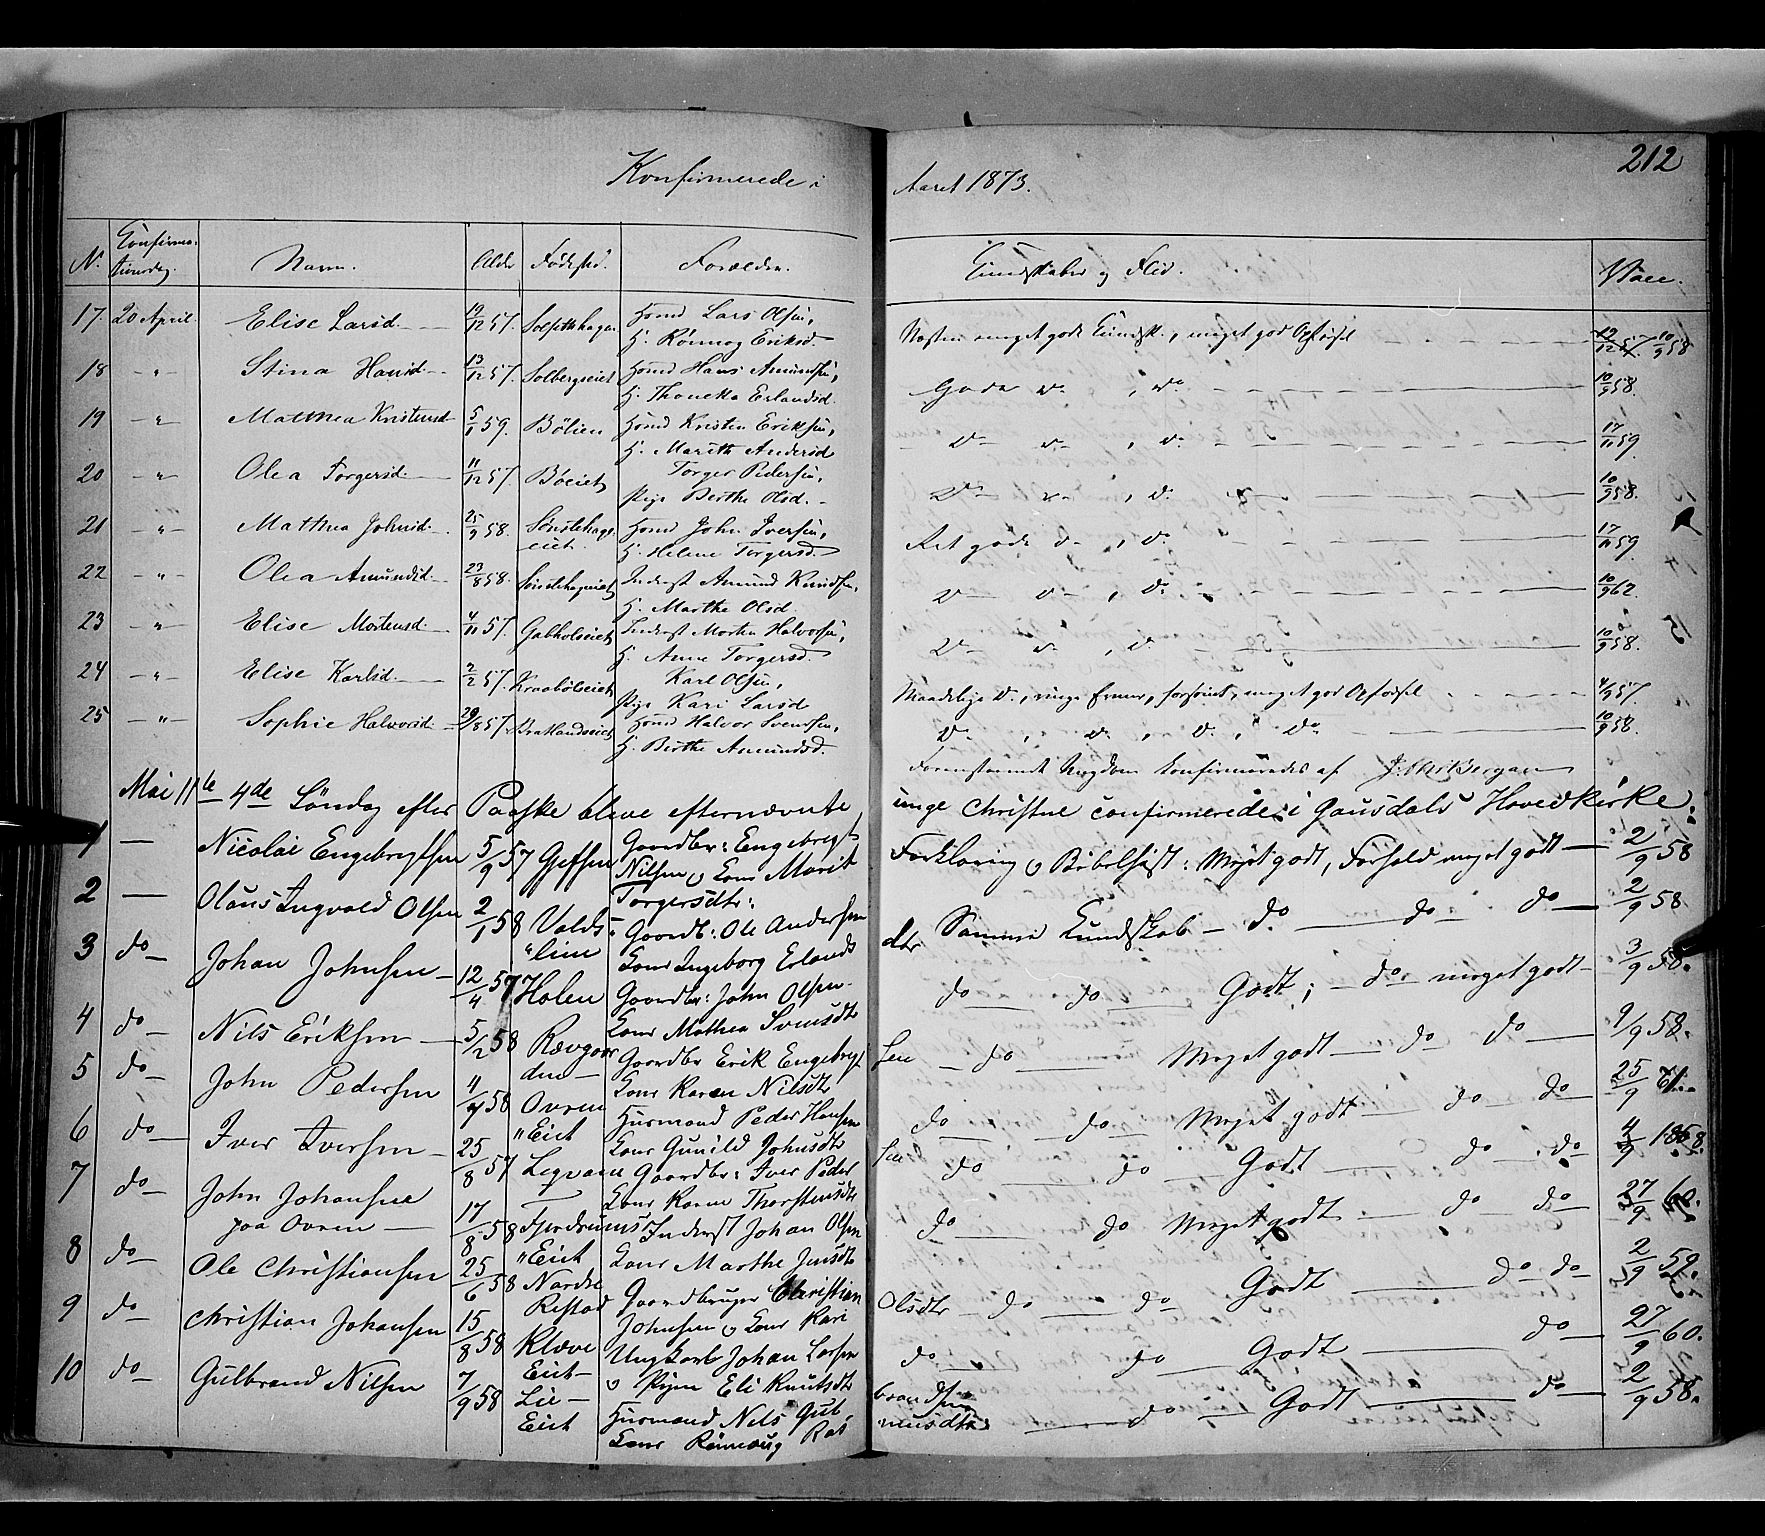 Konfirmerede i Aaret 1873.
212
No. Confirmationsdag. Navn. Alder Fødested. Forældre. Kundskaber og Flid. Vacc.
17. 20 April. Elise Larsd. 19/12 57. Hmd Lars Olsen, Næsten meget gode Kundsk., meget god Opførsel 19/12 57. 10/9 58
K. Rønnog Eriksd.
18 -"- Stina Hansd. 13/12 57. Solbergseiet Hmd Hans Amundsen, Gode do , do 10/9 58.
K. Thoneka Erlandsd.
19 -"- Matthea Kristensd 5/1 59. Bölien Hmd Kristen Eriksen, do do , do 17/11 59
K. Marith Andersd
20 -"- Olea Torgersd. 11/12 57. Böeiet Torger Pedersen, do do , do 10/9 58.
Pige Berthe Olsd.
21 -"- Mathea Johnsd. 25/9 58. Sönstehagseiet. Hmd John Iversen, Ret gode do , do 17/11 59.
K. Helene Torgersd.
22 -"- Olea Amundsd. 23/8 58. Sönstehagseiet Inderst Amund Knudsen, do do , do 10/9 62
K. Marthe Olsd.
23 -"- Elise Mortensd. 4/11 57. Gabholseiet Inderst Morten Halvorsen, do do , do 10/9 58.
K. Anne Torgersd.
24 -"- Elise Karlsd. 2/2 57. Kraabölseiet Karl Olsen, Maadelige do, ringe Evner, forsömt, meget god Opførsel 4/9 57.
Pige Kari Larsd
25 -"- Sophie Halvorsd. 29/8 57. Bratlandseiet Hmd Halvor Svendsen, do , do , do , do 10/9 58.
K. Birthe Amundsd.
Foranstaaende Ungdom konfirmeredes af
Mai 11te 4de Söndag efter Paaske bleve efternævnte unge Christne confirmerede i Gausdals Hovedkirke.
1 — Nicolai Engebregtsen 5/9 57 Geffen Gaardbr: Engebregt Forklaring og Bibelhist: Meget godt, Forhold meget godt — 2/9 58
Nilsen og Kone Marit
Torgersdtr:
2 — Olaus Ingvald Olsen 2/1 58 Volds"line Gaardb: Ole Andersen Samme Kundskab — do — do — do — 2/9 58
Kone Ingeborg Erlandsdtr
3 do — Johan Johnsen — 12/4 57 Holen Gaardbr: John Olsen. do — do — Godt; — do meget godt — 3/9 58.
Kone Mathea Svensdtr
4 do — Nils Eriksen — 5/2 58 Rævgaarden — Gaardbr Erik Engebregtsen — do — Meget godt — do do — 9/9 58.
Kone Karen Nilsdtr
5 do — John Pedersen 4/9 58 Ovren "Eiet Husmand Peder Hansen do — do — Meget godt — do do — 25/9 61.
Kone Gunild Johnsdtr
6 do — Iver Iversen — 25/8 57 Legvam Gaardbr: Iver Pedersen do — do — Godt — do — do — 4/9 1858.
Kone Karen Thorstensdtr
7 do — John Johansen 17/8 58 Fjerdrums "Eiet Inderst Johan Olsen do — do Meget godt — do — do — 27/9 60.
paa Ovren —
Kone Marthe Jensdtr
8 do — Ole Christiansen 25/6 58 Nordre Restad Gaardbruger Christian Godt — do — do — 2/9 59.
Johnsen og Kone Kari Olsdtr — do — do
9 do — Christian Johansen 15/8 58 Kleve Eiet — Ungkarl Johan Larsen do — do — Godt — do — 27/9 60.
og Pigen Eli Knutsdtr
10 do — Gulbrand Nilsen 7/9 58 Lie — Eiet Husmand Nils Gulbrandsen — do — Godt — do — 2/9 58.
Kone Rønnaug Rasmusdtr.